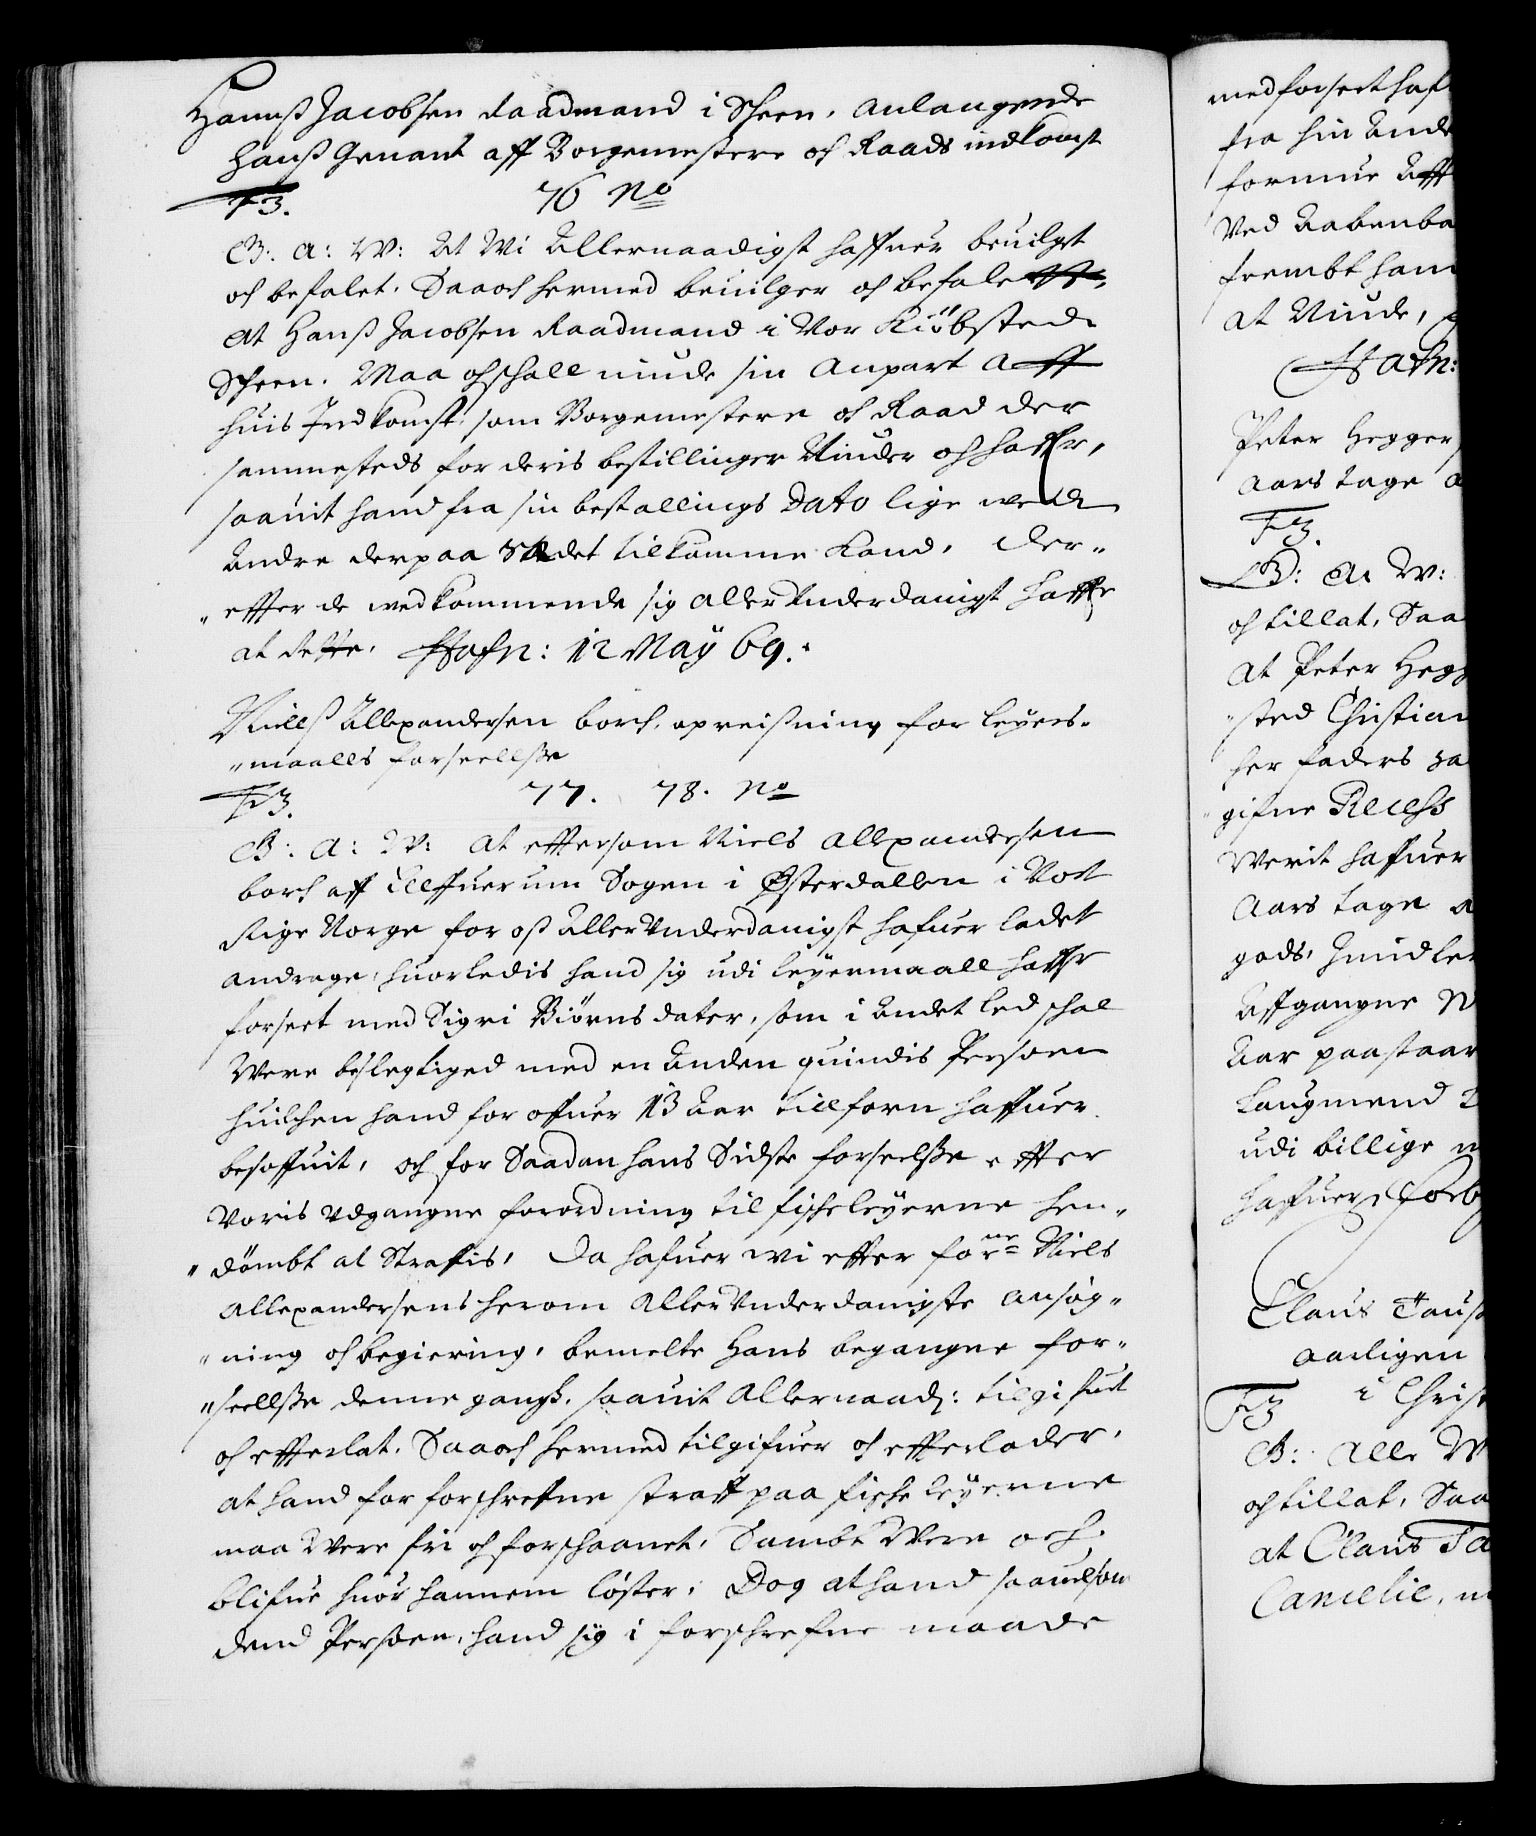 Hannß Jacobsen Raadmand i Scheen, anlangende
hanß Genant aff Borgemestere och Raads indkomst
F3. 76 No
G: A: W: At Wi Allernaadigst haffuer beuilget
och befalet, Saa och hermed beuilger och befaler
at Hanß Jacobsen Raadmand i Vor Kiöbsted
Scheen, Maa och schall niude sin Anpart aff
huis Indkomst, som Borgemestere och Raad der
sammesteds for deris bestillinger Niuder och haffr,
saauit hand fra sin bestallings Dato lige ved
Andre derpaa stædet tilkomme kand, der-
effter de vedkommende sig allerunderdanigst haffr
at rette. Hafn: 12 Maÿ 69.
Nielß Allexandersen borch, opreißning for leyers-
maalls forseellße
F3. 77. 78. No
G: A: W: At effersom Niels Allexandersen
borch aff Elffuerum Sogen i Østerdallen i Vort
Rige Norge for oß Allerunderdanigst hafuer ladet
andrage, huorledis hand sig udi leyermaall haffr
forseet med Sigri Biörnsdater, som i andet led schal
Were beslegtiged med en anden quindis Persoen
huilchen hand for offuer 13 Aar tillforn haffuer
besoffuit, och for Saadan hans Sidste forseelße effter
voris udgangne forordning til fischeleyerne hen-
dömbt at straffis, Da hafuer wi effter forne Niels
Allexandersens herom Allerunderdanigste ansög-
ning och begiering, bemelte Hans begangne for-
seellße denne gangh, saauit Allernaadj: tilgifuet
och effterlat, Saa och hermed tilgifuer och effterlader,
at hand for forschrefne straff paa fische leyerne
maa Were fri och forschaanet, Sambt Were och
blifue huor hannem löster, Dog at hand saauelsom
dend Persoen, hand sig i forschrefne maade
med forseet haf
fra hin ande
formue Aff
Ved Aabenba
frembt ham
at Niude,
Hafn:
Peter Hegger
aars tage
F3.
G: A: W:
och tillat, Saa
at Peter Hegg
sted Christian
her faders
gifne Recess
Werit haffuer
Aars tage
gods,
Affgangne
Aar paastaar
Laugmend
udi billige
haffuer, forb
Claus Tauß
aarligen
F3 i Christ
G: Alle W
och tillat, Saa
at Claus Ta
Cancelie,